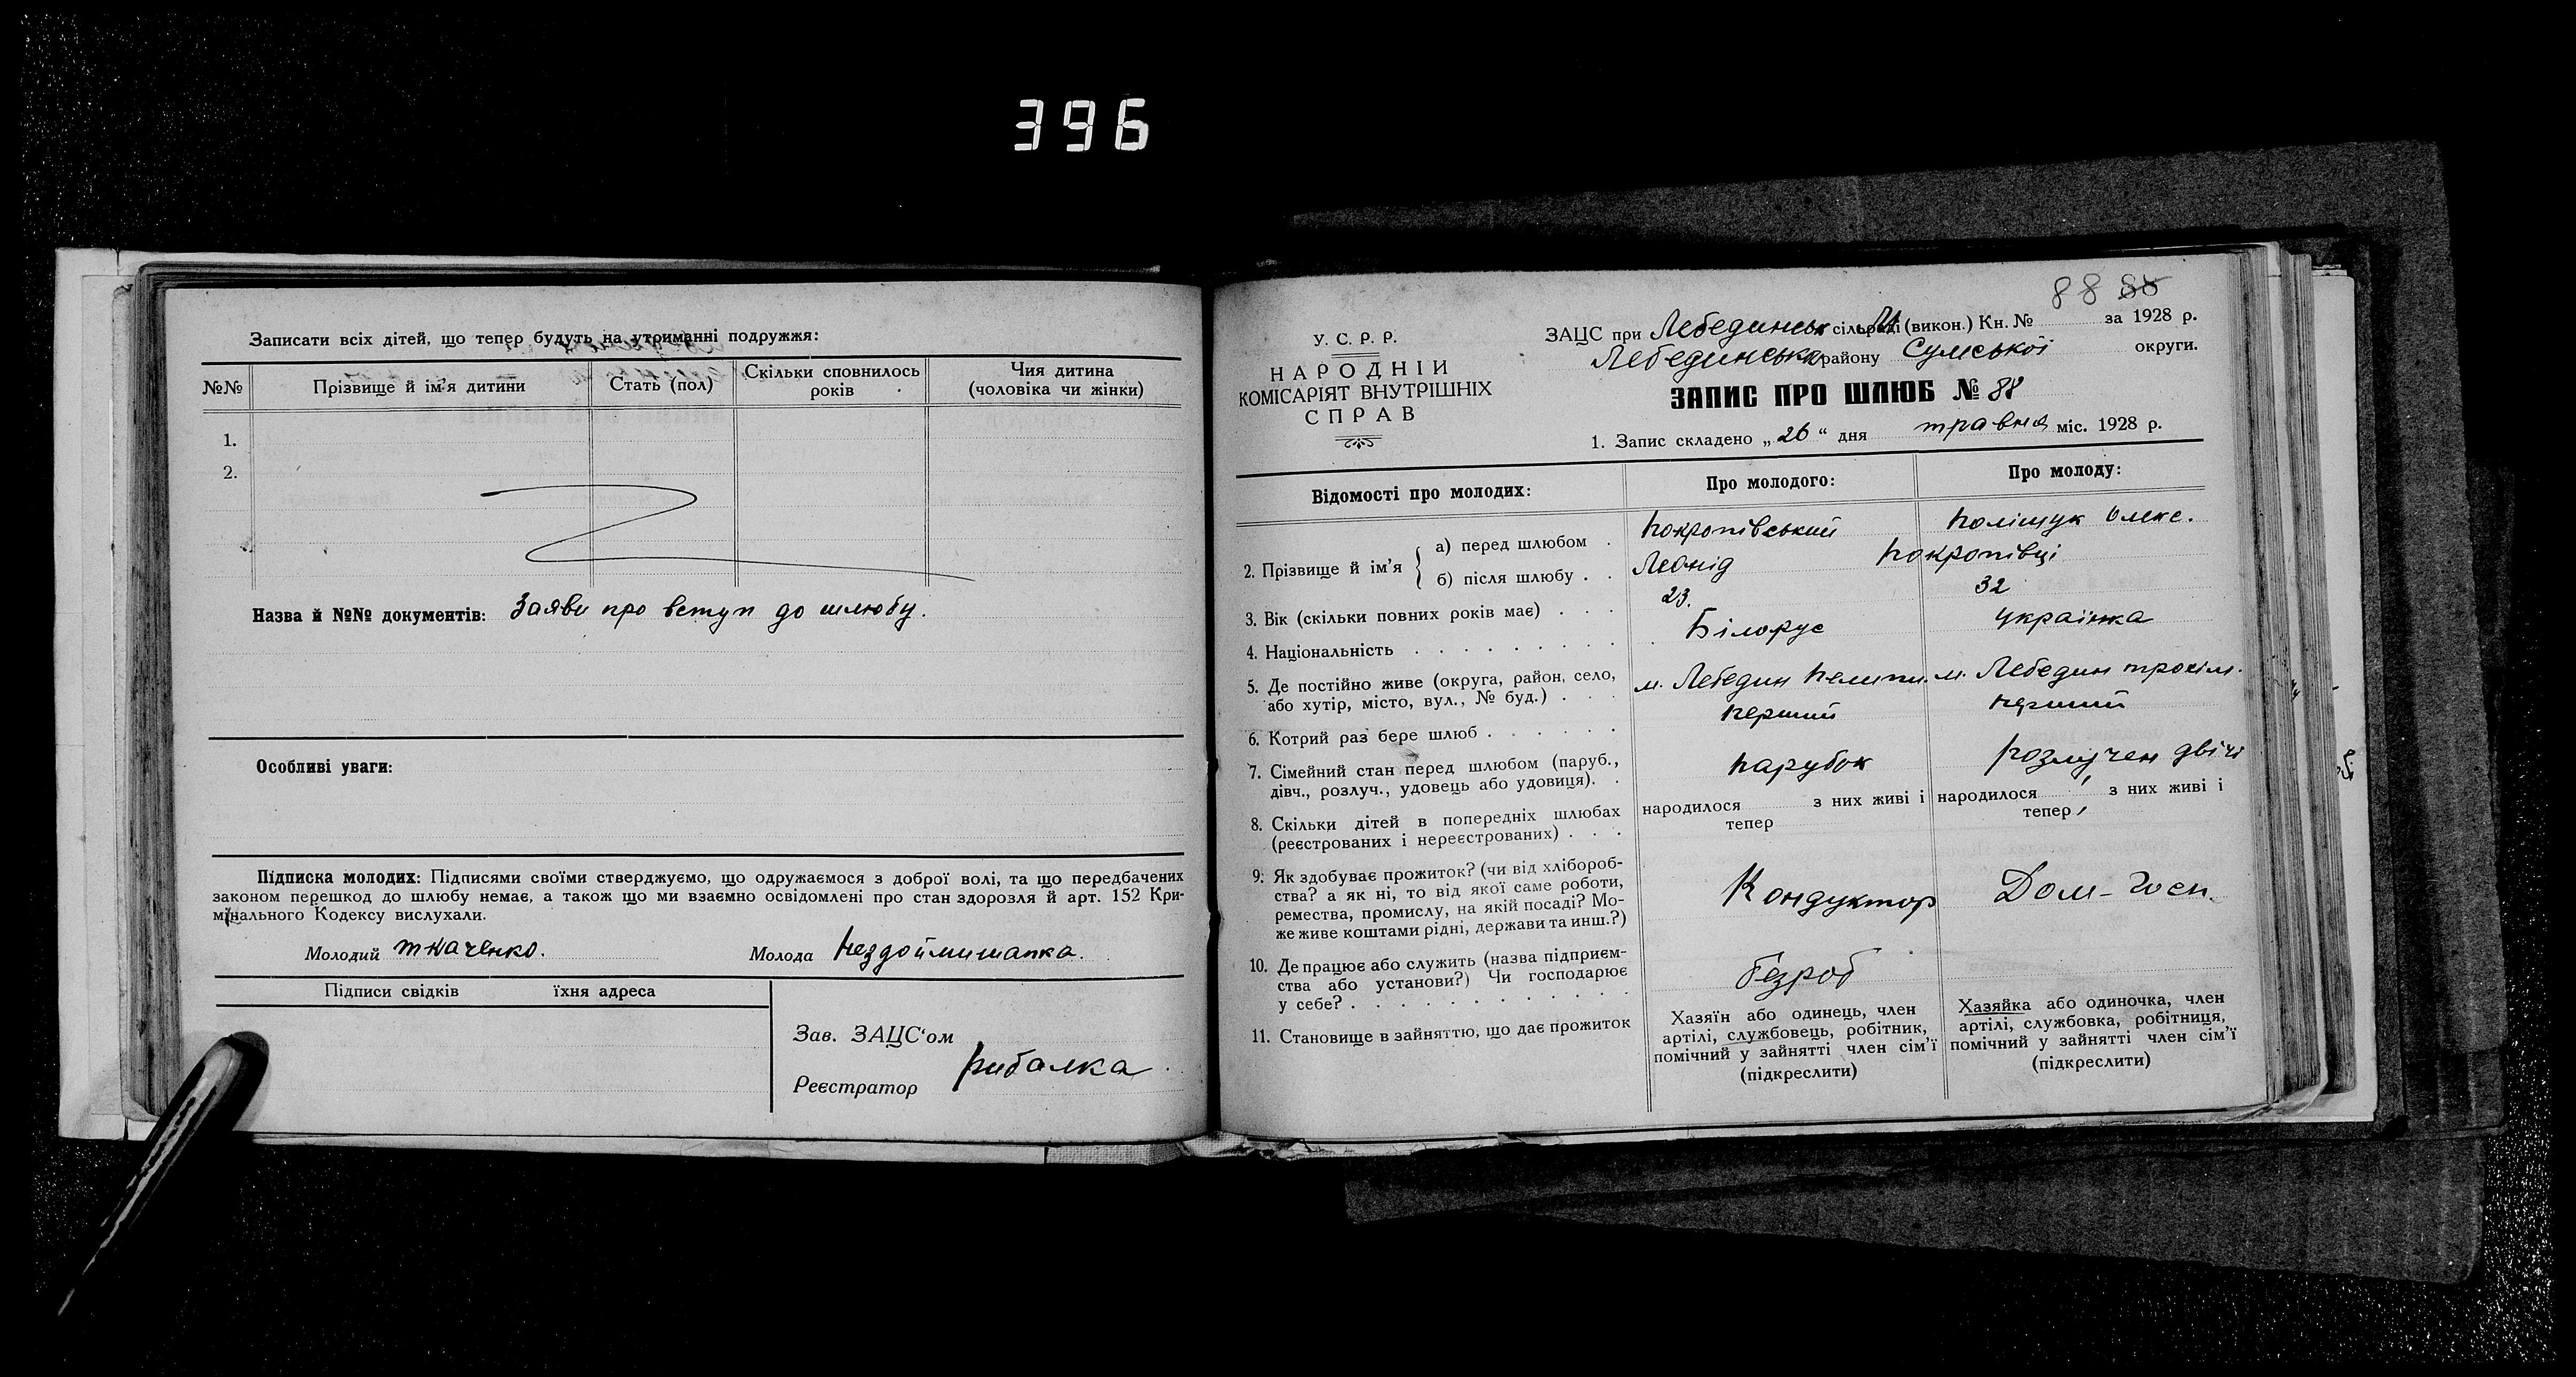 396
Записати всіх дітей, що тепер будуть на утриманні подружжя:
№№ Прізвище й ім'я дитини Стать (пол) Скільки сповнилось років Чия дитина (чоловіка чи жінки)
1.
2.
Назва й №№ документів: Заяви про вступ до шлюбу.
Особливі уваги:
Підписка молодих: Підписями своїми стверджуємо, що одружаємося з доброї волі, та що передбачених
законом перешкод до шлюбу немає, а також що ми взаємно освідомлені про стан здоровля й арт. 152 Кри-
мінального Кодексу вислухали.
Молодий Ткаченко. Молода Нездоймишапка.
Підписи свідків їхня адреса
Зав. ЗАЦС'ом
Реєстратор Рибалка
88 88
У. С. Р. Р.
НАРОДНІЙ
КОМІСАРІЯТ ВНУТРІШНІХ
СПРАВ
ЗАЦС при Лебединськ сільраді (викон.) Кн. № за 1928 р.
Лебединська району Сумської округи.
ЗАПИС ПРО ШЛЮБ № 88
1. Запис складено „26“ дня травня міс. 1928 р.
Відомості про молодих: Про молодого: Про молоду:
2. Прізвище й ім'я
а) перед шлюбом . Покропівський Поліщук Олекс.
б) після шлюбу . . Леонід Покропівці
3. Вік (скільки повних років має) . . . 23. 32
4. Національність . . . . . . . . . Білорус Українка
5. Де постійно живе (округа, район, село,
або хутір, місто, вул., № буд.) . . . м. Лебедин м. Лебедин
6. Котрий раз бере шлюб . . . . . . перший перший
7. Сімейний стан перед шлюбом (паруб.,
дівч., розлуч., удовець або удовиця). . парубок розлучен двічі
8. Скільки дітей в попередніх шлюбах
(реєстрованих і нереєстрованих) . . .
народилося з них живі і
тепер
народилося з них живі і
тепер
9. Як здобуває прожиток? (чи від хлібороб-
ства? а як ні, то від якої саме роботи,
ремества, промислу, на якій посаді? Мо-
же живе коштами рідні, держави та инш.?)
Кондуктор Дом-Госп.
10. Де працює або служить (назва підприєм-
ства або установи?) Чи господарює
у себе? . . . . . . . . . . . .
безроб
11. Становище в зайняттю, що дає прожиток
Хазяїн або одинець, член
артілі, службовець, робітник,
помічний у зайнятті член сім'ї
(підкреслити)
Хазяйка або одиночка, член
артілі, службовка, робітниця,
помічний у зайнятті член сім'ї
(підкреслити)